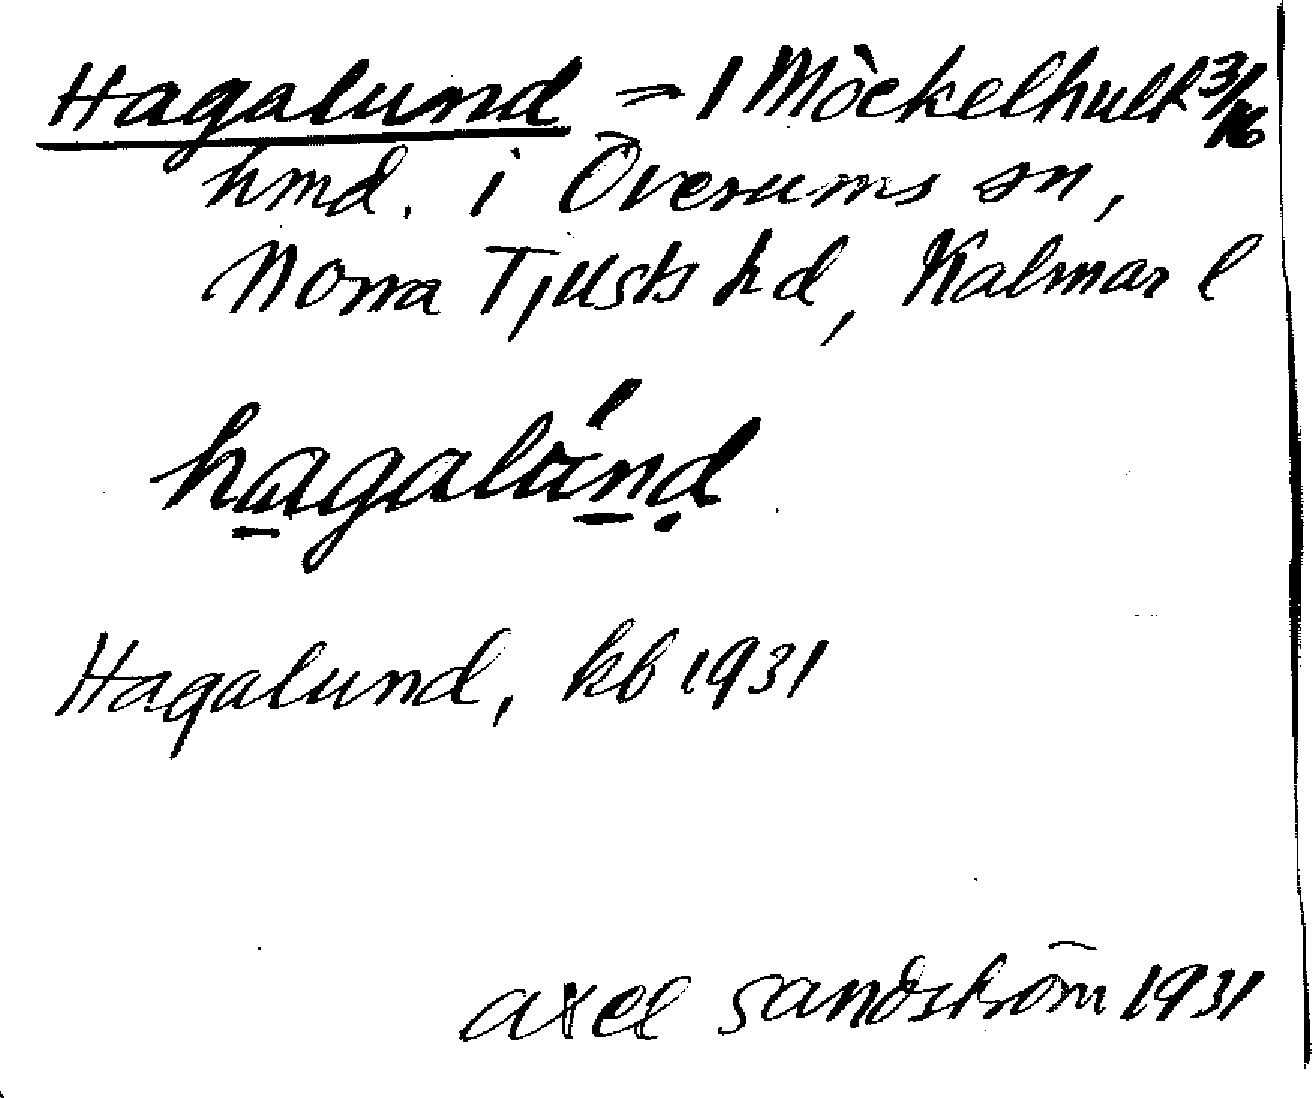 Hagalund = 1 Möckelhult 3/16
hmd. i Överums sn,
Norra Tjusts hd, Kalmar l
hagalúnd
Hagalund, kb 1931
axel sandström 1931